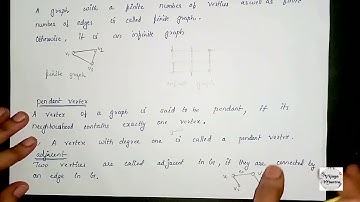 A graph with a finite number of vertices as well as finite
number of edges is called finite graph.
Otherwise, it is an infinite graph
V1
V2
V3
finite graph
infinite graph
Pendant vertex
A vertex of a graph is said to be pendant, if its
neighbourhood contains exactly one vertex.
A vertex with degree one is called a pendant vertex.
adjacent
Two vertices are called adjacent in G, if they are connected by
an edge in G.